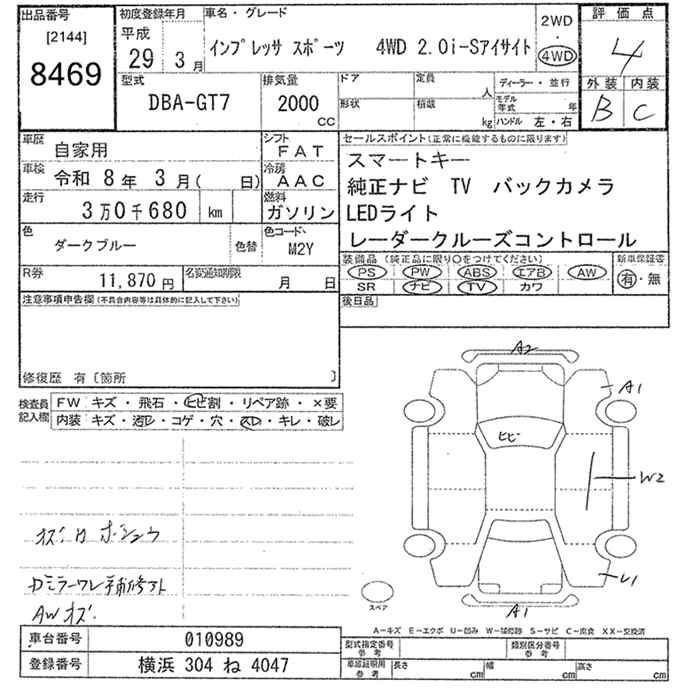 出品番号
[2144]
8469
初度登録年月
平成
29 3 月
車名・グレード
インプレッサ スポーツ 4WD 2.0i-Sアイサイト
2WD
・
4WD
評価点
4
外装 内装
B C
型式
DBA-GT7
排気量
2000
CC
ドア
形状
定員
人
積載
kg
ディーラー・並行
モデル年式 年
ハンドル 左・右
車歴
自家用
シフト
FAT
車検
令和 8年 3月( 日)
冷房
AAC
走行
3万0千680 km
燃料
ガソリン
色
ダークブルー
色替
色コード
M2Y
R券
11,870 円
名変通知期限
月 日
セールスポイント(正常に機能するものに限ります)
スマートキー
純正ナビ TV バックカメラ
LEDライト
レーダークルーズコントロール
装備品 (純正品に限り○をつけてください)
新車保証書
PS PW ABS エアB AW
SR ナビ TV カワ
有・無
後日品
注意事項申告欄(不具合内容等は具体的に記入して下さい)
修復歴 有〔箇所 〕
検査員記入欄
FW キズ・飛石・ヒビ割・リペア跡・×要
内装 キズ・汚レ・コゲ・穴・スレ・キレ・破レ
A2
A1
ヒビ
W2
U1
A1
スペア
AWキズ
A-キズ E-エクボ U-凹み W-補修跡 S-サビ C-腐食 XX-交換済
車台番号 010989
登録番号 横浜 304 ね 4047
型式指定番号参考
類別区分番号参考
車庫証明用参考
長さ cm
幅 cm
高さ cm